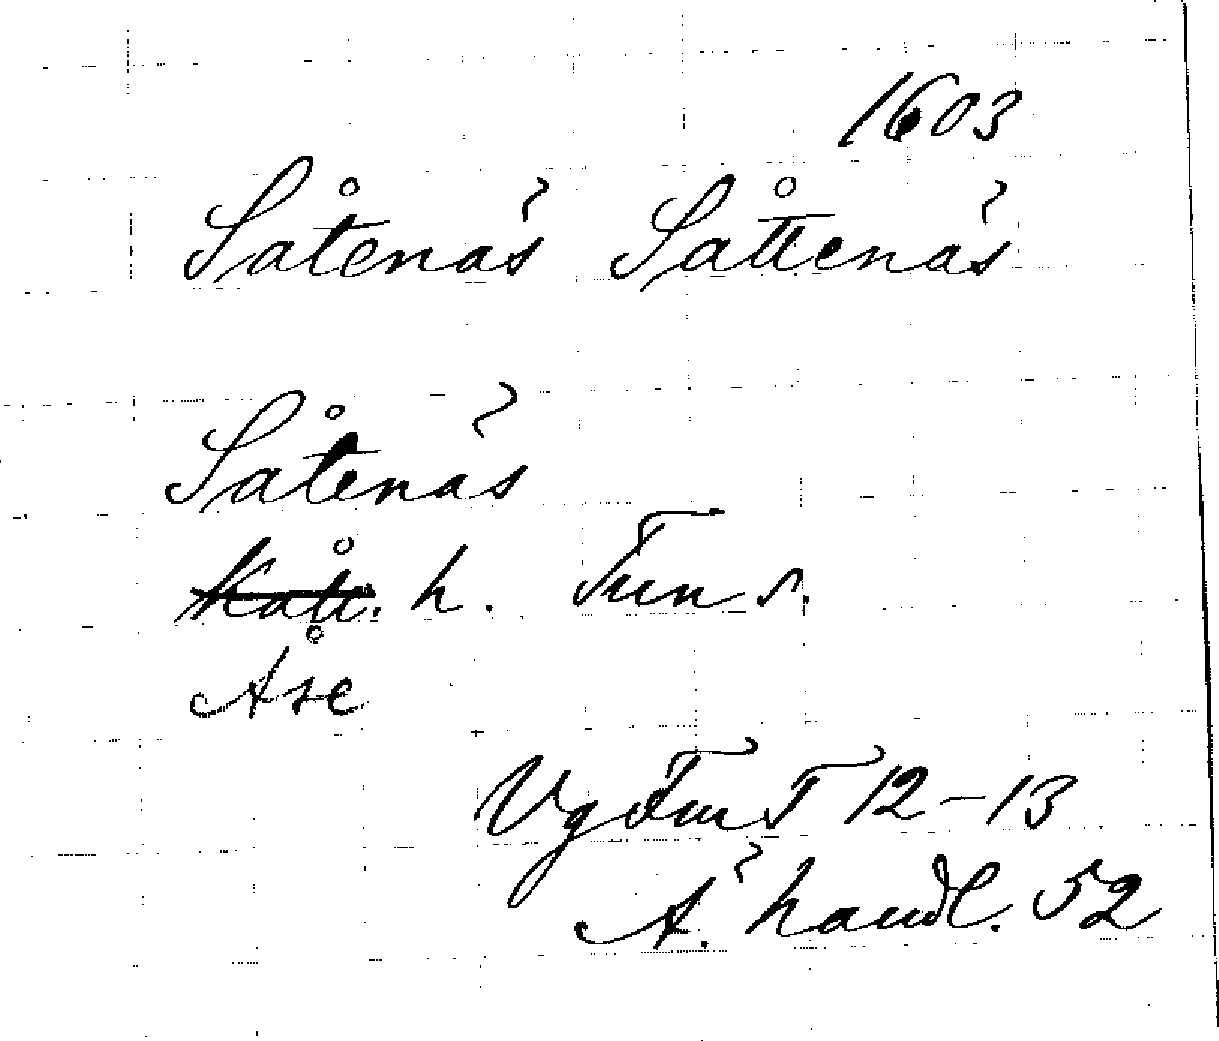 1603
Såtenäs Såttenäs
Såtenäs
Kåll. h. Tun s.
Åse
VgFmT 12-13
Ä. handl. 52